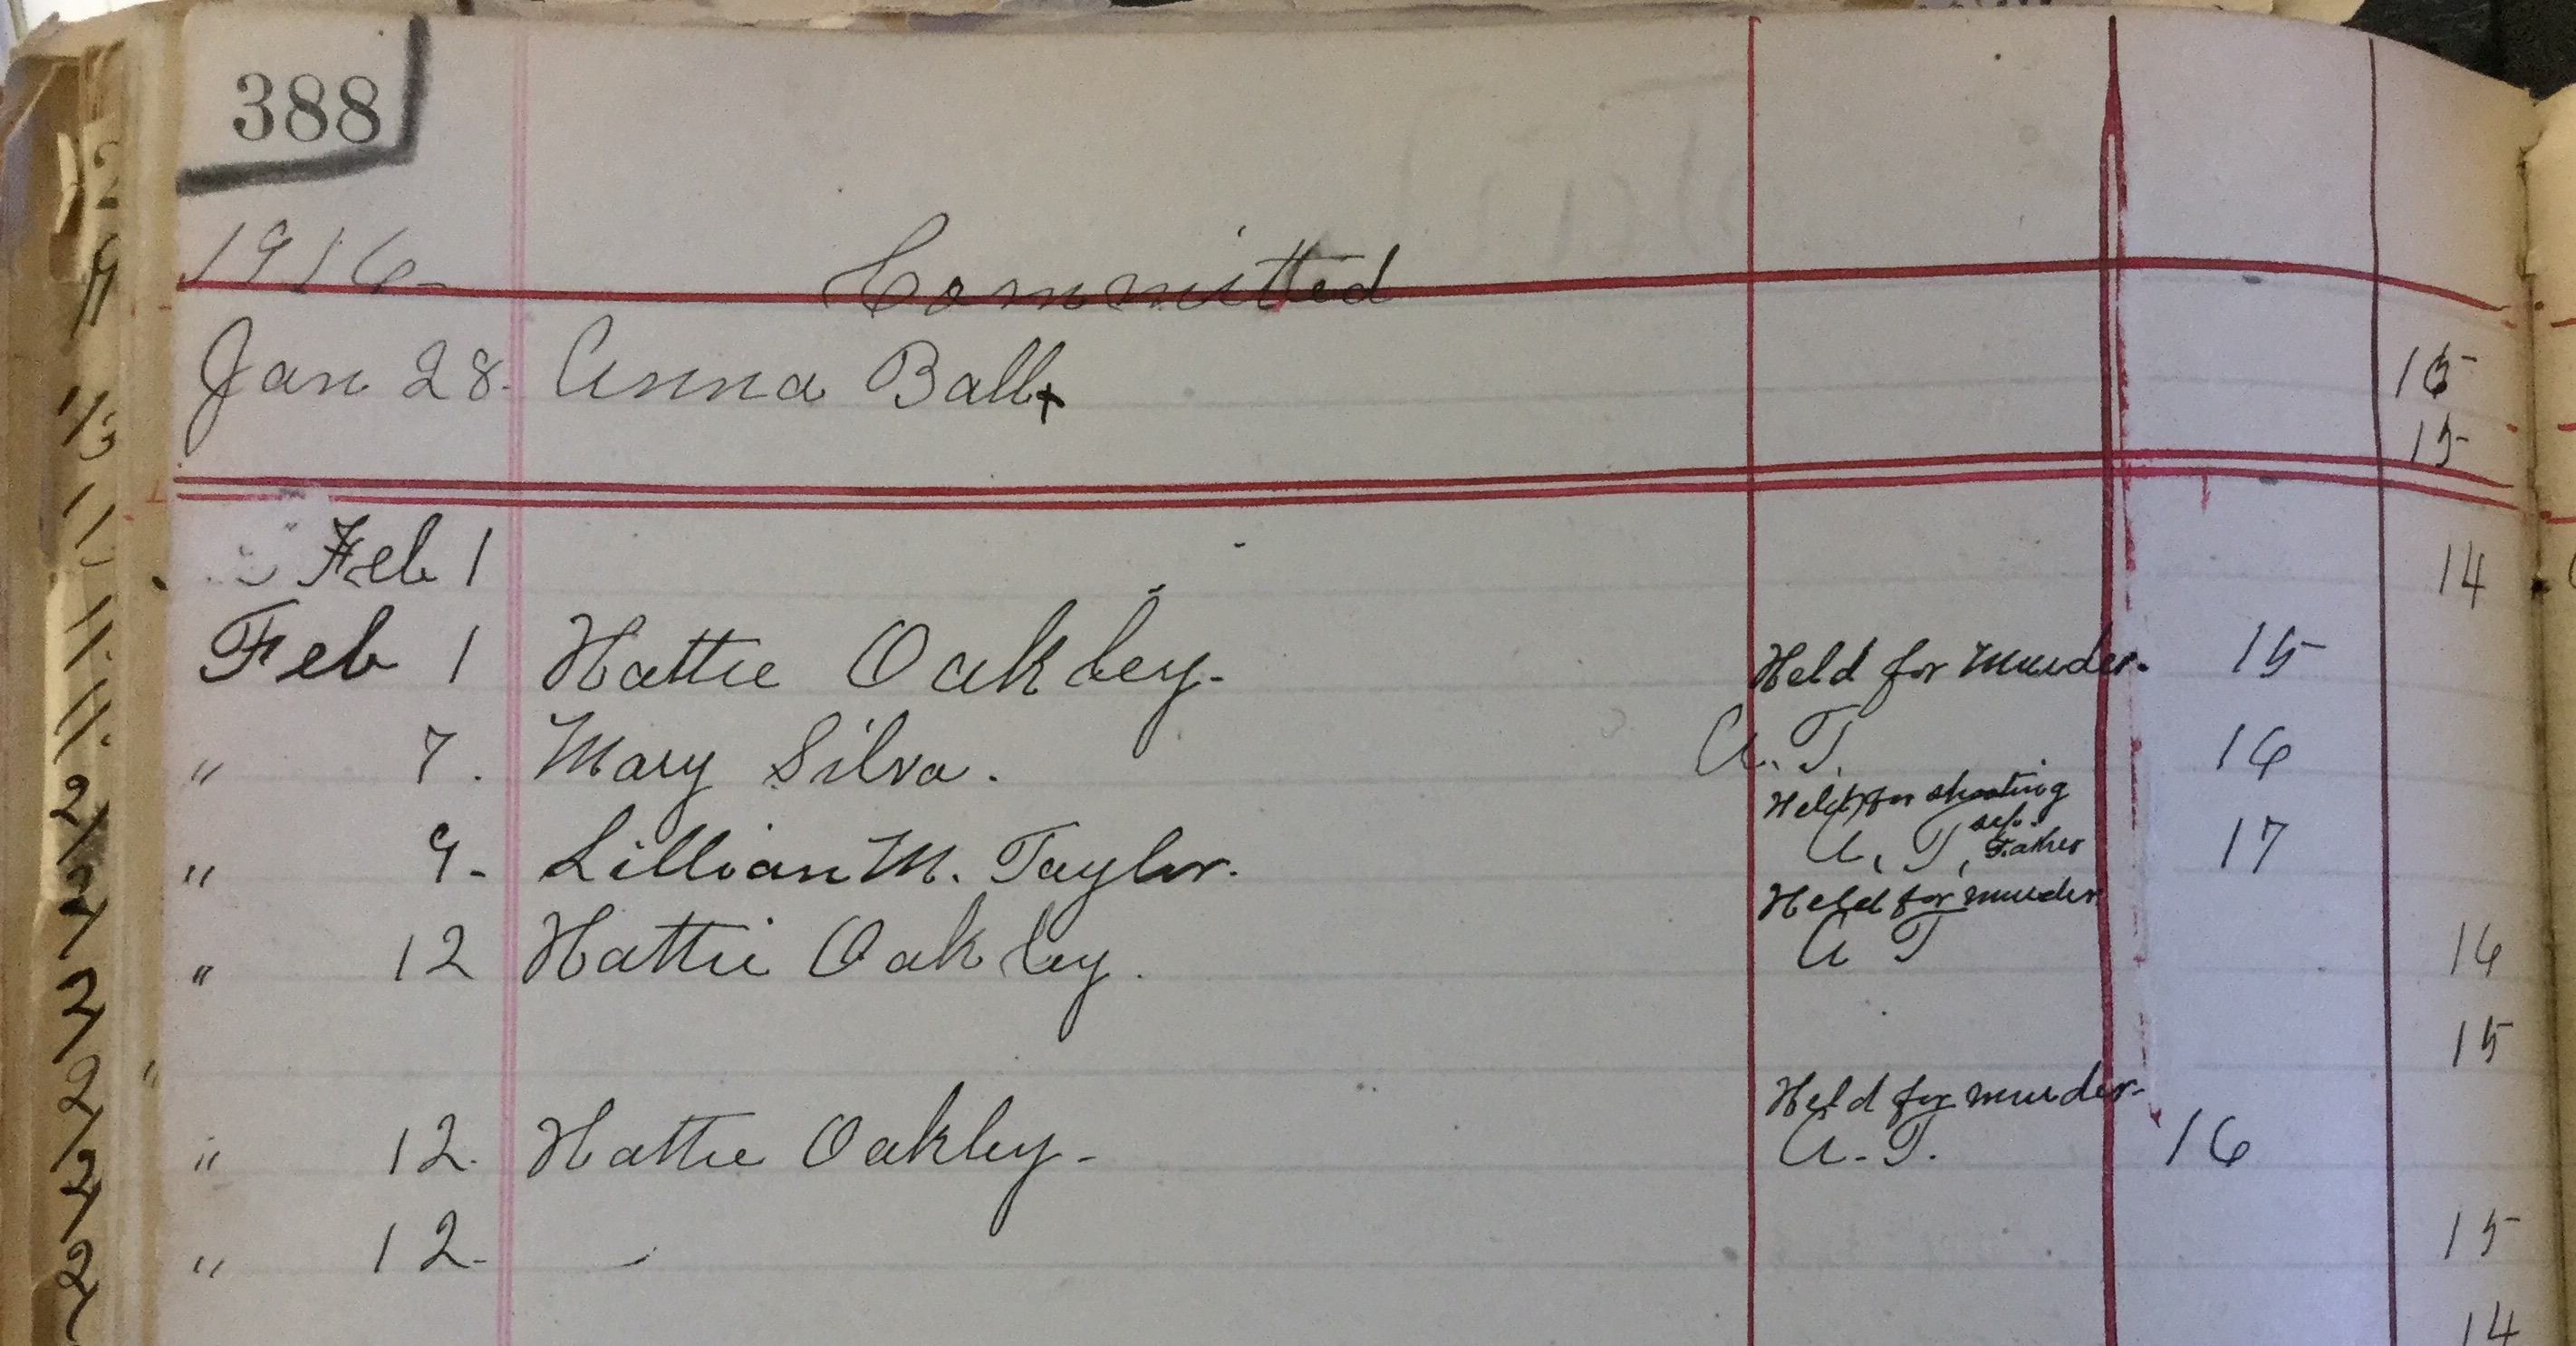 388
1916- Committed
Jan 28. Anna Ball+ 15
15
Feb 1 14
Feb 1 Hattie Oakley- Held for Murder. 15
" 7. Mary Silva. A.T. 16
Held for shooting
step.
" 9- Lillian M. Taylor. A. T, Father 17
Held for murder
" 12 Hattie Oakley. A T 16
15
Held for murder-
" 12. Hattie Oakley- A.T. 16
" 12- 15
14